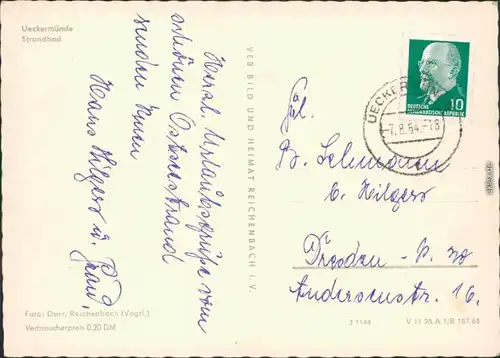 Ueckermünde
Strandbad
Herzl. Urlaubsgrüße vom
schönen Ostseestrand
senden Ihnen
Hans Hilgers u. Frau.
VEB BILD UND HEIMAT REICHENBACH i. V.
DEUTSCHE
DEMOKRATISCHE REPUBLIK
10
UECKER
-7.8.64.-18
Frl.
B. Lehmann
b. Hilgers
Dresden-
Andersenstr. 16.
Foto: Darr, Reichenbach (Vogtl.)
Verbraucherpreis 0,20 DM
V 11 28 A 1/B 167/64